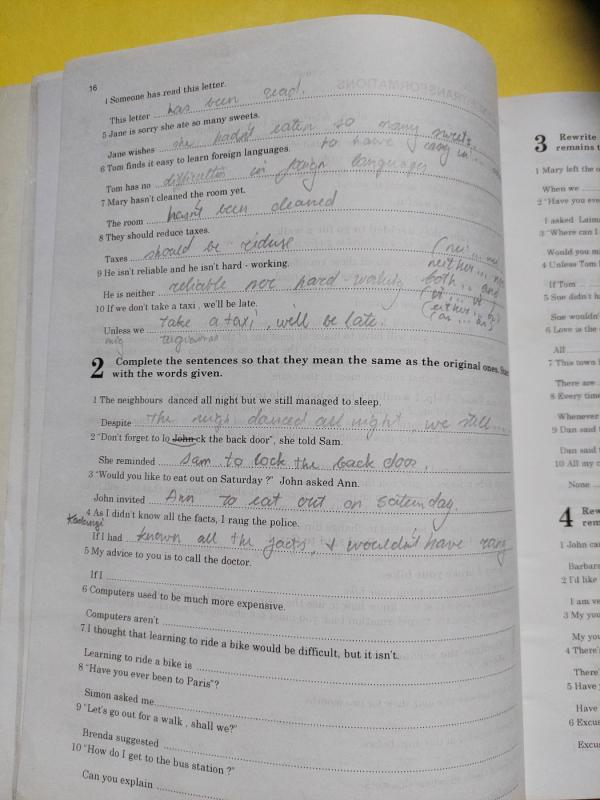 16
4 Someone has read this letter.
This letter has been read.
5 Jane is sorry she ate so many sweets.
Jane wishes she hadn't eaten so many sweets.
6 Tom finds it easy to learn foreign languages.
Tom has no difficulties in foreign languages
7 Mary hasn't cleaned the room yet.
The room hasn't been cleaned
8 They should reduce taxes.
Taxes should be
9 He isn't reliable and he isn't hard - working.
neither... nor
He is neither reliable nor hard-working
both... and
10 If we don't take a taxi , we'll be late.
(either... or)
Unless we take a taxi, we'll be late.
(as... as)
2 Complete the sentences so that they mean the same as the original ones. Start
with the words given.
1 The neighbours danced all night but we still managed to sleep.
Despite the danced all night, we still...
2 "Don't forget to lo John ck the back door", she told Sam.
She reminded Sam to lock the back door.
3 "Would you like to eat out on Saturday ?" John asked Ann.
John invited Ann to eat out on saturday.
4 As I didn't know all the facts, I rang the police.
If I had known all the facts, I wouldn't have rang
5 My advice to you is to call the doctor.
If I
6 Computers used to be much more expensive.
Computers aren't
7 I thought that learning to ride a bike would be difficult, but it isn't.
Learning to ride a bike is
8 "Have you ever been to Paris"?
Simon asked me
9 "Let's go out for a walk , shall we?"
Brenda suggested
10 "How do I get to the bus station ?"
Can you explain
3 Rewrite
remains t
1 Mary left the o
When we
2 "Have you eve
I asked Laim
3 "Where can I
Would you m
4 Unless Tom
If Tom
5 Sue didn't h
Sue wouldn'
6 Love is the
All
7 This town
There are
8 Every time
Whenever
9 Dan said t
Dan said
10 All my c
None
4 Rew
rem
1 John ca
Barbara
2 I'd like
I am ve
3 My you
My you
4 There'
There'
5 Have
Have
6 Excus
Excus